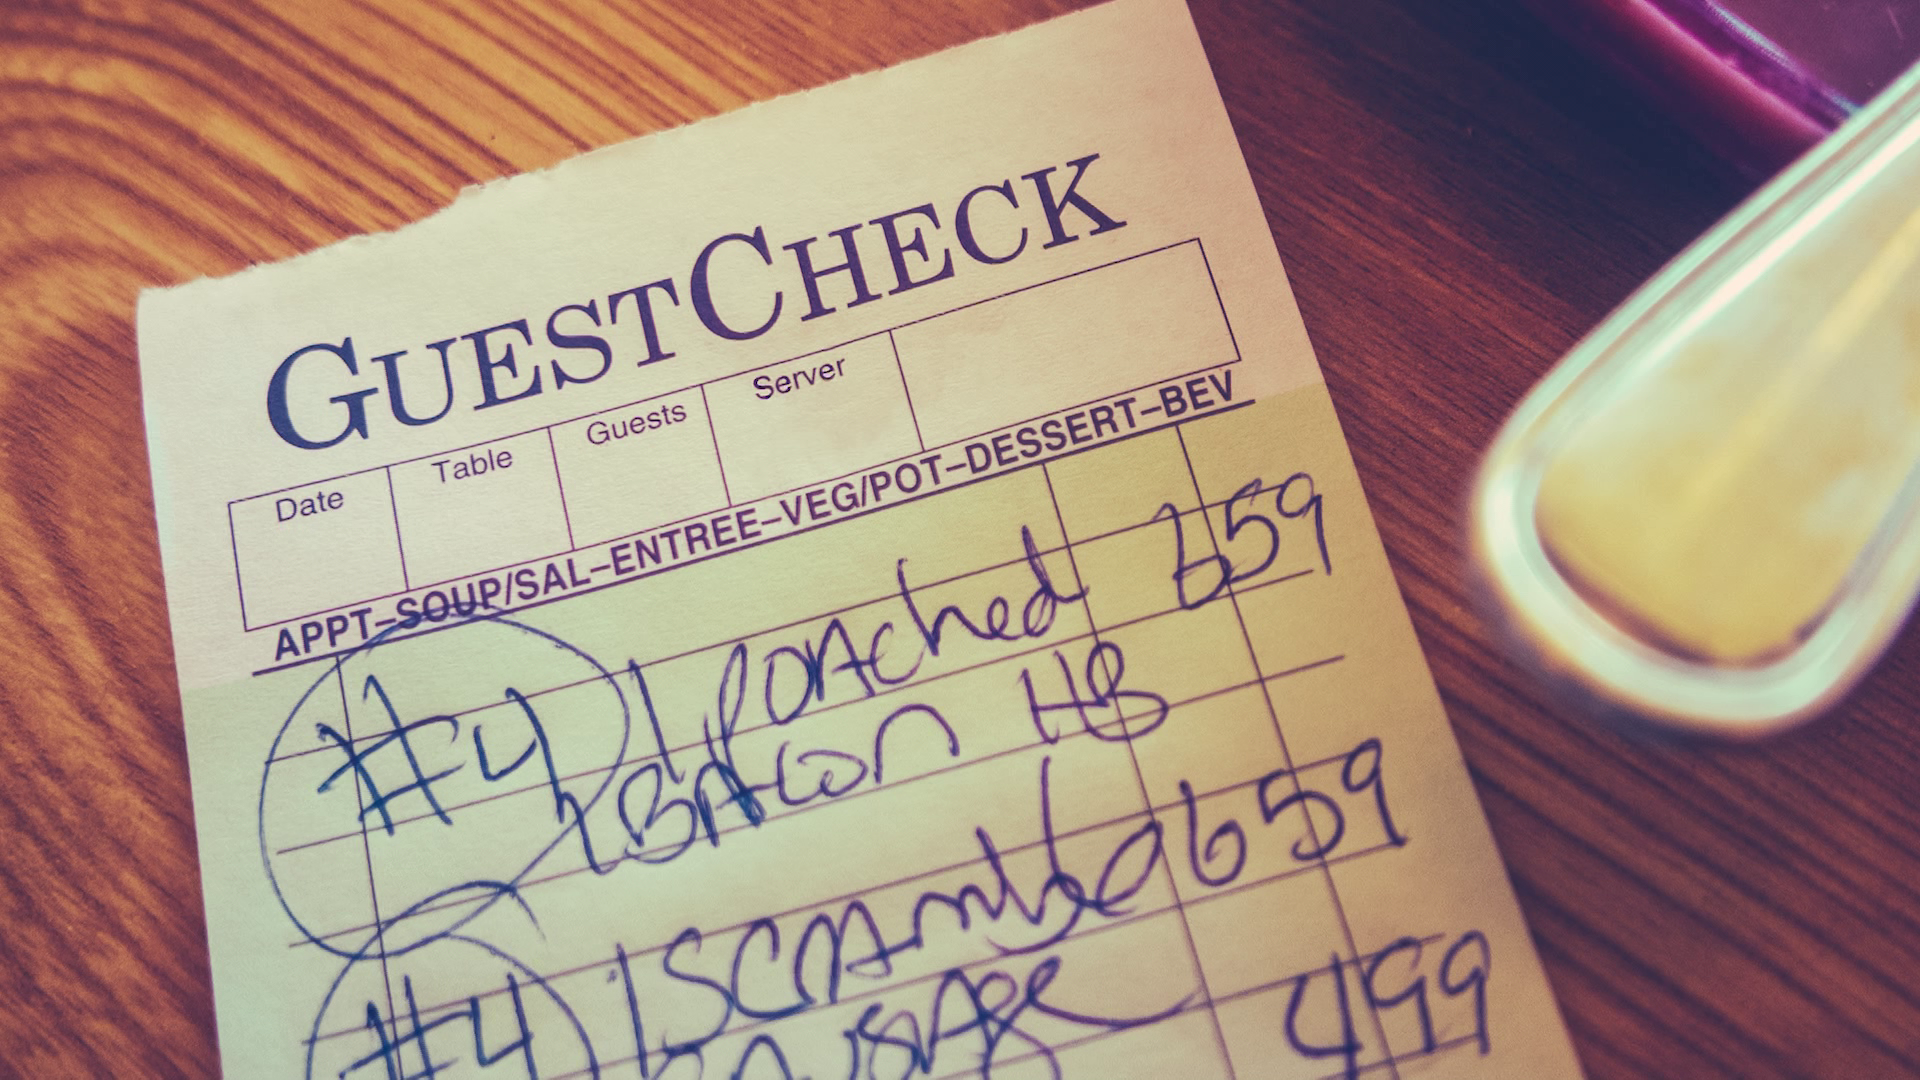 GUESTCHECK
Date Table Guests Server
APPT-SOUP/SAL-ENTREE-VEG/POT-DESSERT-BEV
#4 1 POAched 659
BACON HB
#4 1 SCRAmbled 659
SAUSAge 499